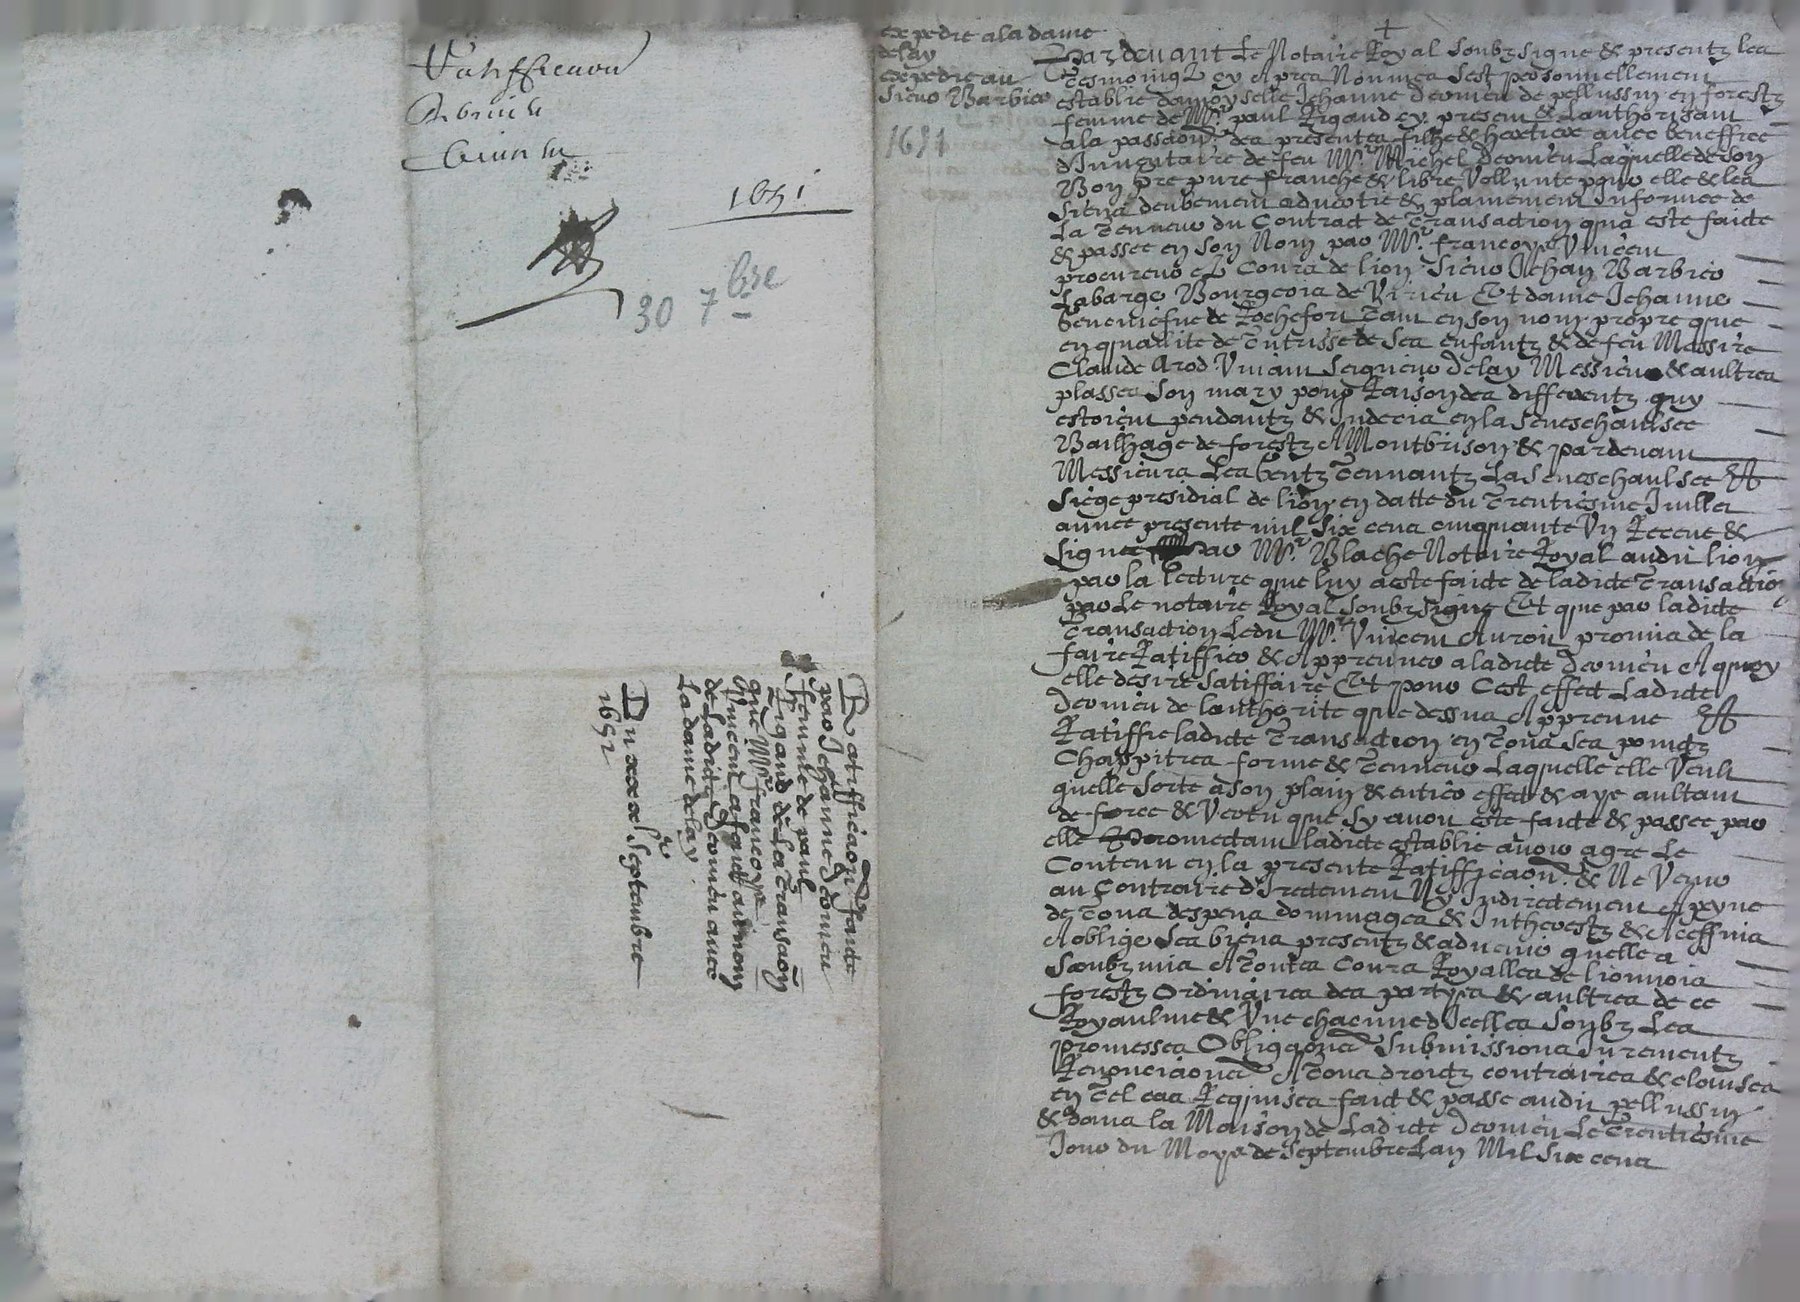 Ratifficaon
1651
30 7bre
Ratifficaon faicte
par Jehanne Deomieu
femme de paul
Rigaud de la transaon
que Mr francoys
Vincent a faict au nom
de Ladicte Deomieu avec
La dame delay
Du xxxe Septembre
1651
expedie a la dame
delay
expedie au
Sieur Barbier
1651
Pardevant Le Notaire Royal Soubzsigne & presentz les
Tesmoingz cy Apres Nommes Sest personnellement
establie damoyselle Jehanne Deomieu de pellussin en forestz
femme de Mr paul Rigaud cy present & Lauthorisant
a la passaon des presentes filhe & hertiere avec beneffice
dInventaire de feu Mr Michel Deomieu Laquelle de Son
Bon gre pure franche & libre Vollunte pour elle & les
Siens deubement advertie & plainement Informee de
La Teneur du Contract de Transaction qua este faicte
& passee en Son Nom par Mr francoys Vincent
procureur es Cours de lion Sieur Jehan Barbier
Labarge Bourgeois de Virieu Et dame Jehanne
de Rochefort Tant en Son nom propre que
en qualite de Tutrisse de Ses enfantz & de feu Messire
Claude Arod Vivant Seigneur delay Messieu & aultres
plasses Son mary pour Raison des differentz quy
estoient pendantz & Indecis en la Seneschaulsee
Bailhage de forestz A Montbrison & pardevant
Messieurs Les Gentz Tennantz La Seneschaulsee Et
Siege presidial de lion en datte du Trentiesme Jullet
annee presente mil Six cens cinquante Un Receue &
Signee par Mr Blache Notaire Royal audit lion
par la Lecture que luy a este faicte de ladicte Transaction
par Le notaire Royal Soubzsigne Et que par ladicte
Transaction Ledit Mr Vincent Auroit promis de la
faire Ratiffier & Appreuver a ladicte Deomieu A quoy
elle desire Satiffaire Et pour Cest effect Ladicte
Deomieu de lauthorite que dessus Appreuve Et
Ratiffie ladicte Transaction en Tous Ses pointz
Chappitres forme & Tenneur Laquelle elle Veult
quelle Sorte a Son plain & entier effect & aye aultant
de force & Vertu que Sy avoit este faicte & passee par
elle Promectant ladicte establie avoir agre Le
Contenu en la presente Ratifficaon & Ne Venir
au Contraire directement Ny Indirectement A peyne
de Tous despens dommages & Intherestz &
A oblige Ses biens presentz & advenir quelle a
Soubzmis A Toutes Cours Royalles de lionnois
forestz Ordinaires des partyes & aultres de ce
Royaulme & Une chacune dIcelles Soubz Les
promesses Obligaons Submissions Jurementz
Renonciaons A Tous droictz contraires & clauses
en Tel cas Requises faict & passe audit pellussin
& dans la Maison de Ladicte Deomieu Le Trentiesme
Jour du Moys de Septembre Lan Mil Six cens